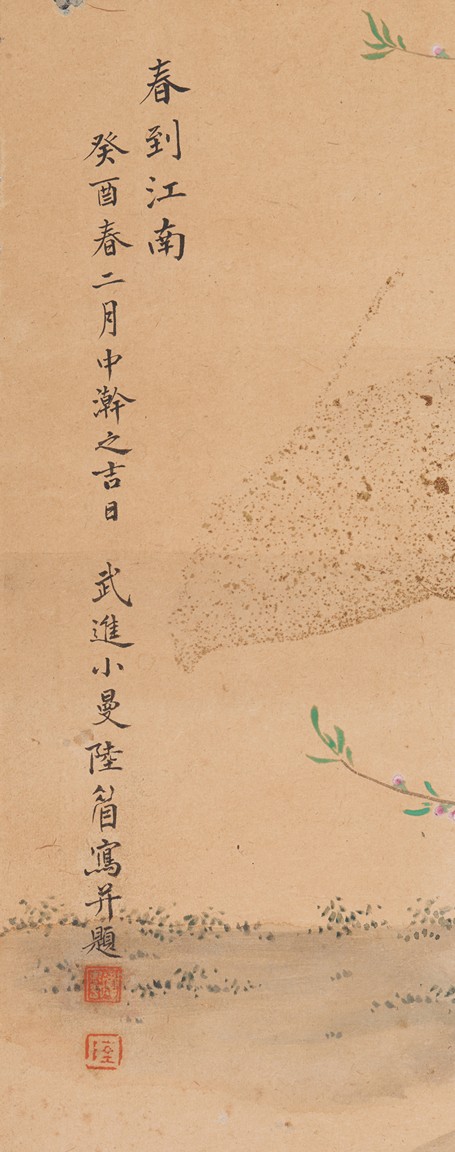 春到江南
癸酉春二月中澣之吉日　武進小曼陸眉寫并題